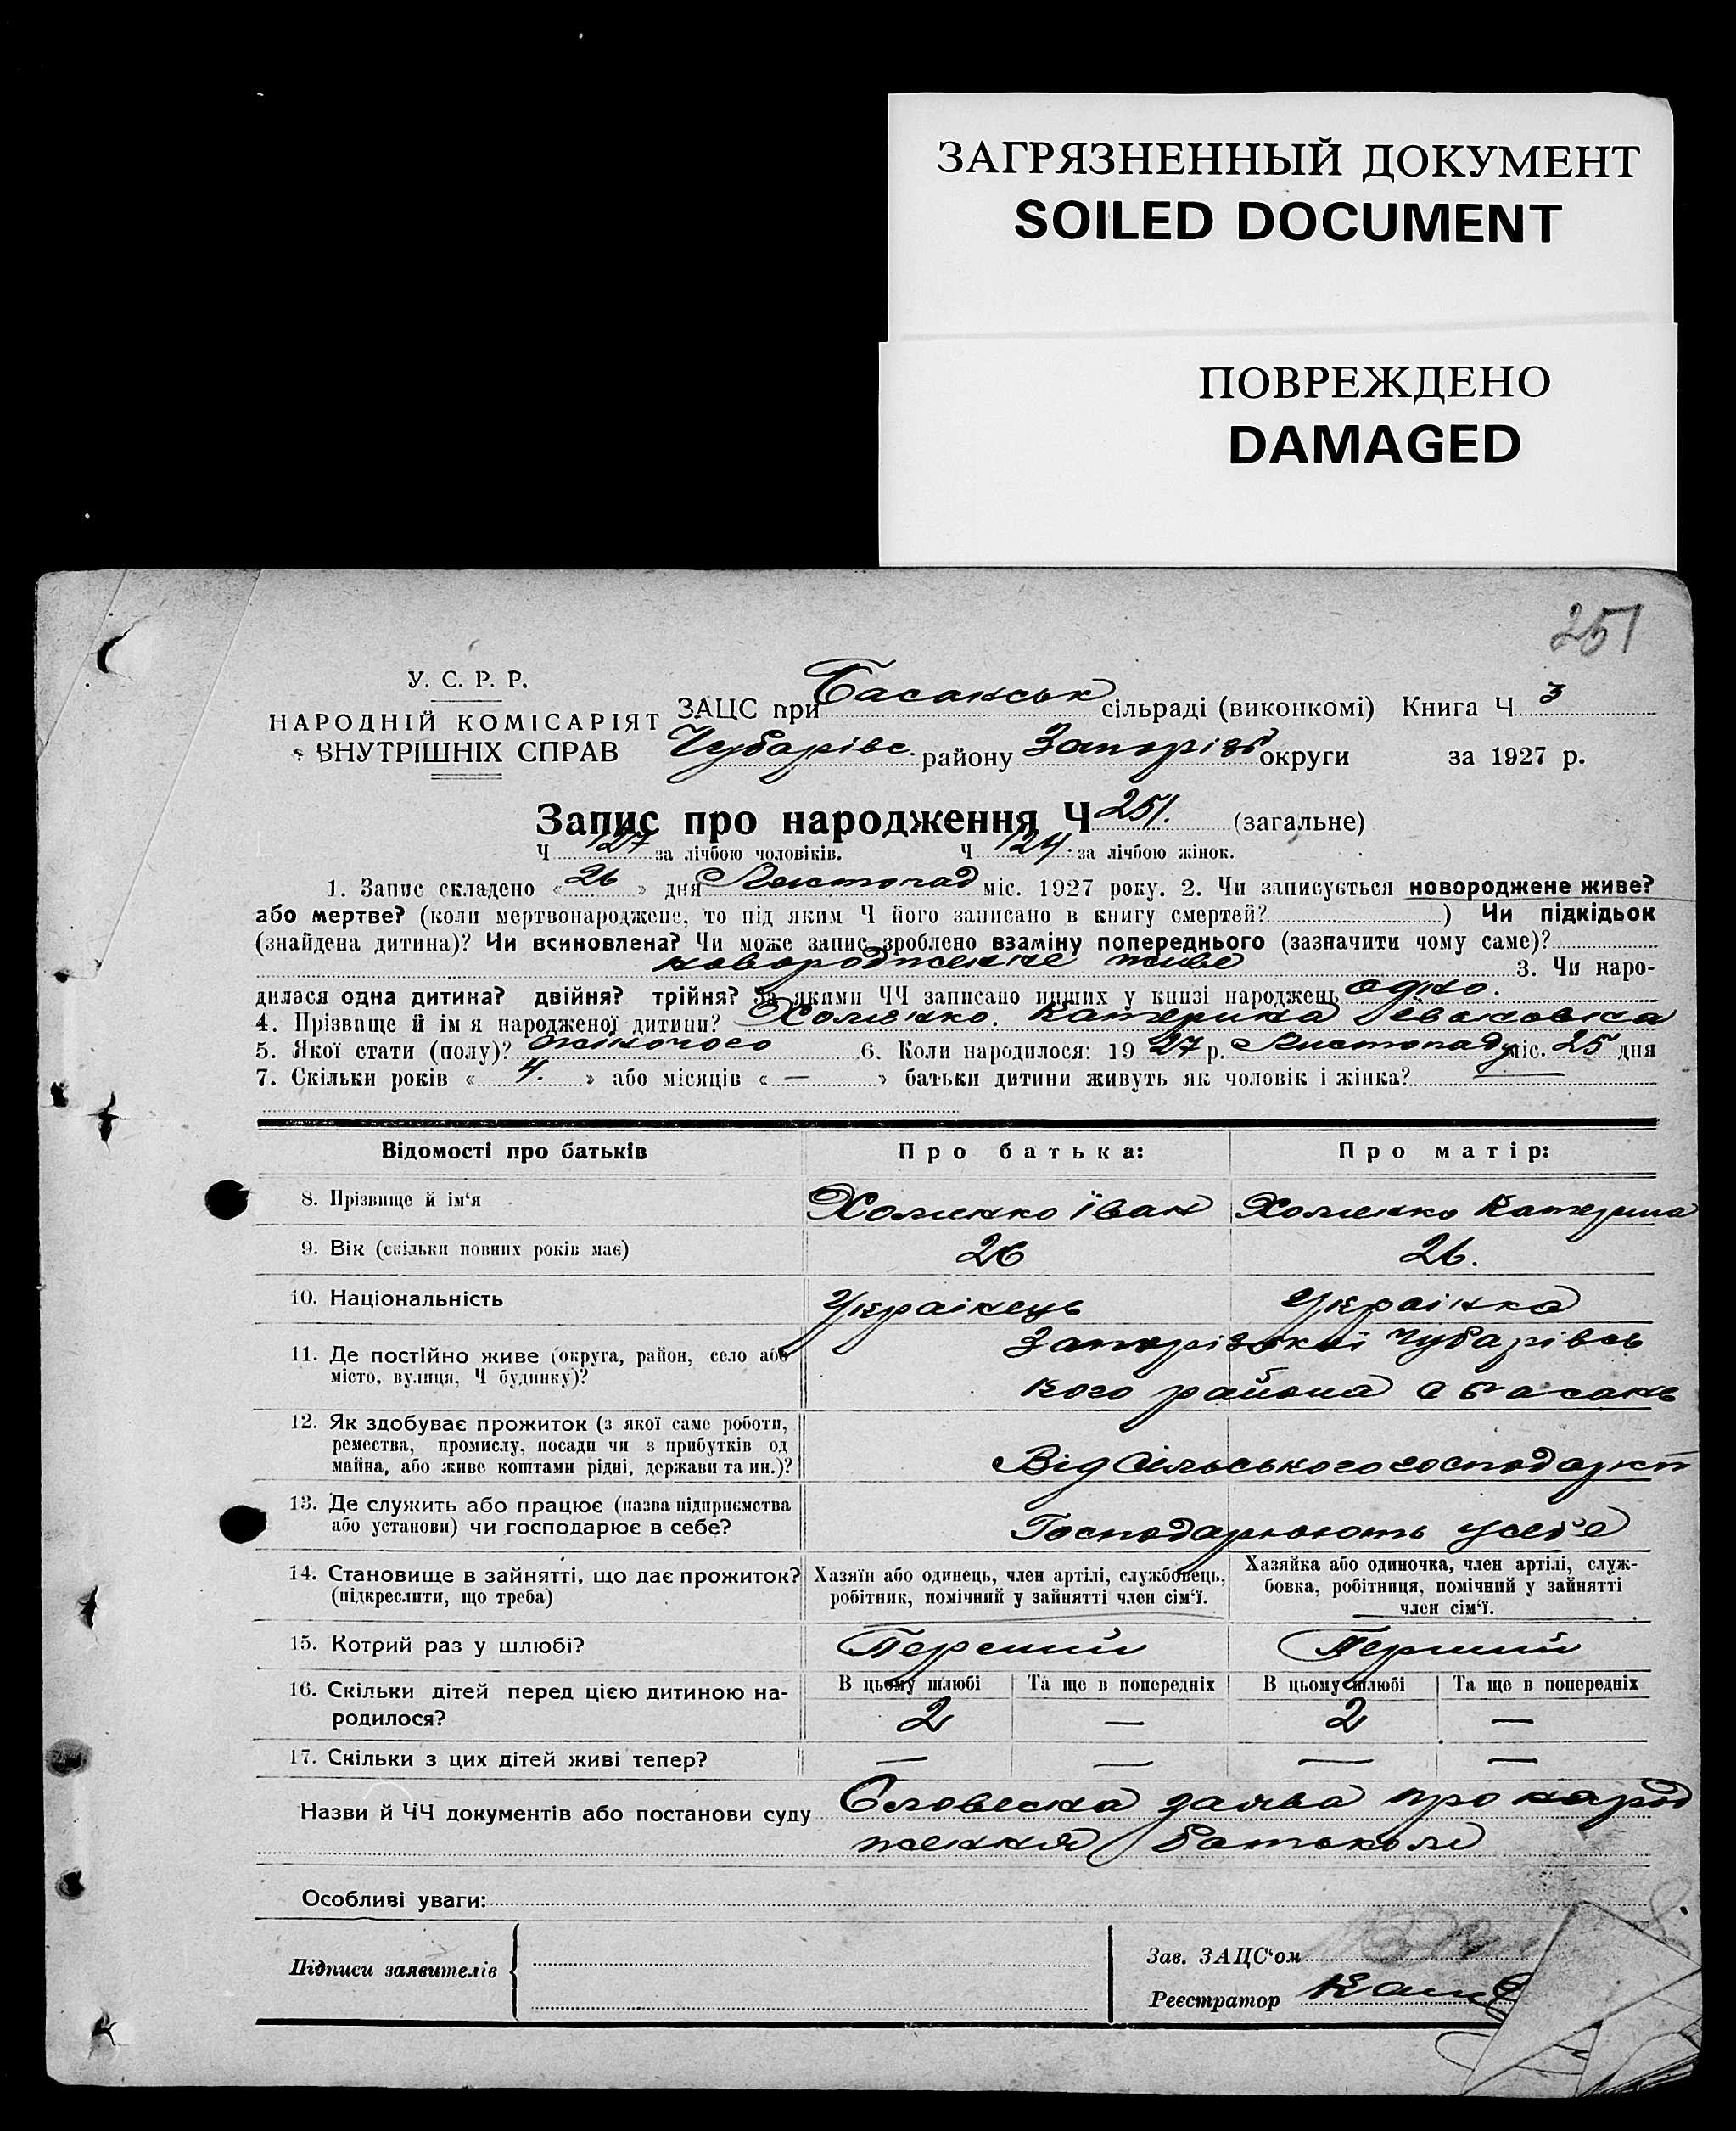 ЗАГРЯЗНЕННЫЙ ДОКУМЕНТ
SOILED DOCUMENT
ПОВРЕЖДЕНО
DAMAGED
251
У. С. Р. Р.
НАРОДНІЙ КОМІСАРІЯТ
ВНУТРІШНІХ СПРАВ
ЗАЦС при Басанськ сільраді (виконкомі) Книга Ч 3
Чубарівс. району Запорізь округи за 1927 р.
Запис про народження Ч 251. (загальне)
Ч 127 за лічбою чоловіків. Ч 124. за лічбою жінок.
1. Запис складено «26» дня Листопад міс. 1927 року. 2. Чи записується новороджене живе?
або мертве? (коли мертвонароджене, то під яким Ч його записано в книгу смертей? ) Чи підкідьок
(знайдена дитина)? Чи всиновлена? Чи може запис зроблено взаміну попереднього (зазначити чому саме)?
новородженне живе 3. Чи наро-
дилася одна дитина? двійня? трійня? За якими ЧЧ записано инших у книзі народжень одно.
4. Прізвище й ім я народженої дитини? Хоменко. Катерина Івановна
5. Якої стати (полу)? жіночого 6. Коли народилося: 1927 р. Листопаду міс. 25 дня
7. Скільки років «4.» або місяців «—» батьки дитини живуть як чоловік і жінка? —
Відомості про батьків Про батька: Про матір:
8. Прізвище й ім‘я Хоменко Іван Хоменко Катерина
9. Вік (скільки повних років має) 26 26.
10. Національність Украінець Украінка
11. Де постійно живе (округа, район, село або
місто, вулиця, Ч будинку)?
Запорізької Чубарівсь
кого района с Басань
12. Як здобуває прожиток (з якої саме роботи,
ремества, промислу, посади чи з прибутків од
майна, або живе коштами рідні, держави та ин.)?
Від сільського господарст
13. Де служить або працює (назва підприємства
або установи) чи господарює в себе?
Господарюють у себе
14. Становище в зайнятті, що дає прожиток?
(підкреслити, що треба)
Хазяїн або одинець, член артілі, службовець,
робітник, помічний у зайнятті член сім‘ї.
Хазяйка або одиночка, член артілі, служ-
бовка, робітниця, помічний у зайнятті
член сім‘ї.
15. Котрий раз у шлюбі? Перший Перший
16. Скільки дітей перед цією дитиною на-
родилося?
В цьому шлюбі Та ще в попередніх В цьому шлюбі Та ще в попередніх
2 — 2 —
17. Скільки з цих дітей живі тепер? — — — —
Назви й ЧЧ документів або постанови суду Словесна заява про народ
ження батьком
Особливі уваги:
Підписи заявителів
Зав. ЗАЦС‘ом
Реєстратор